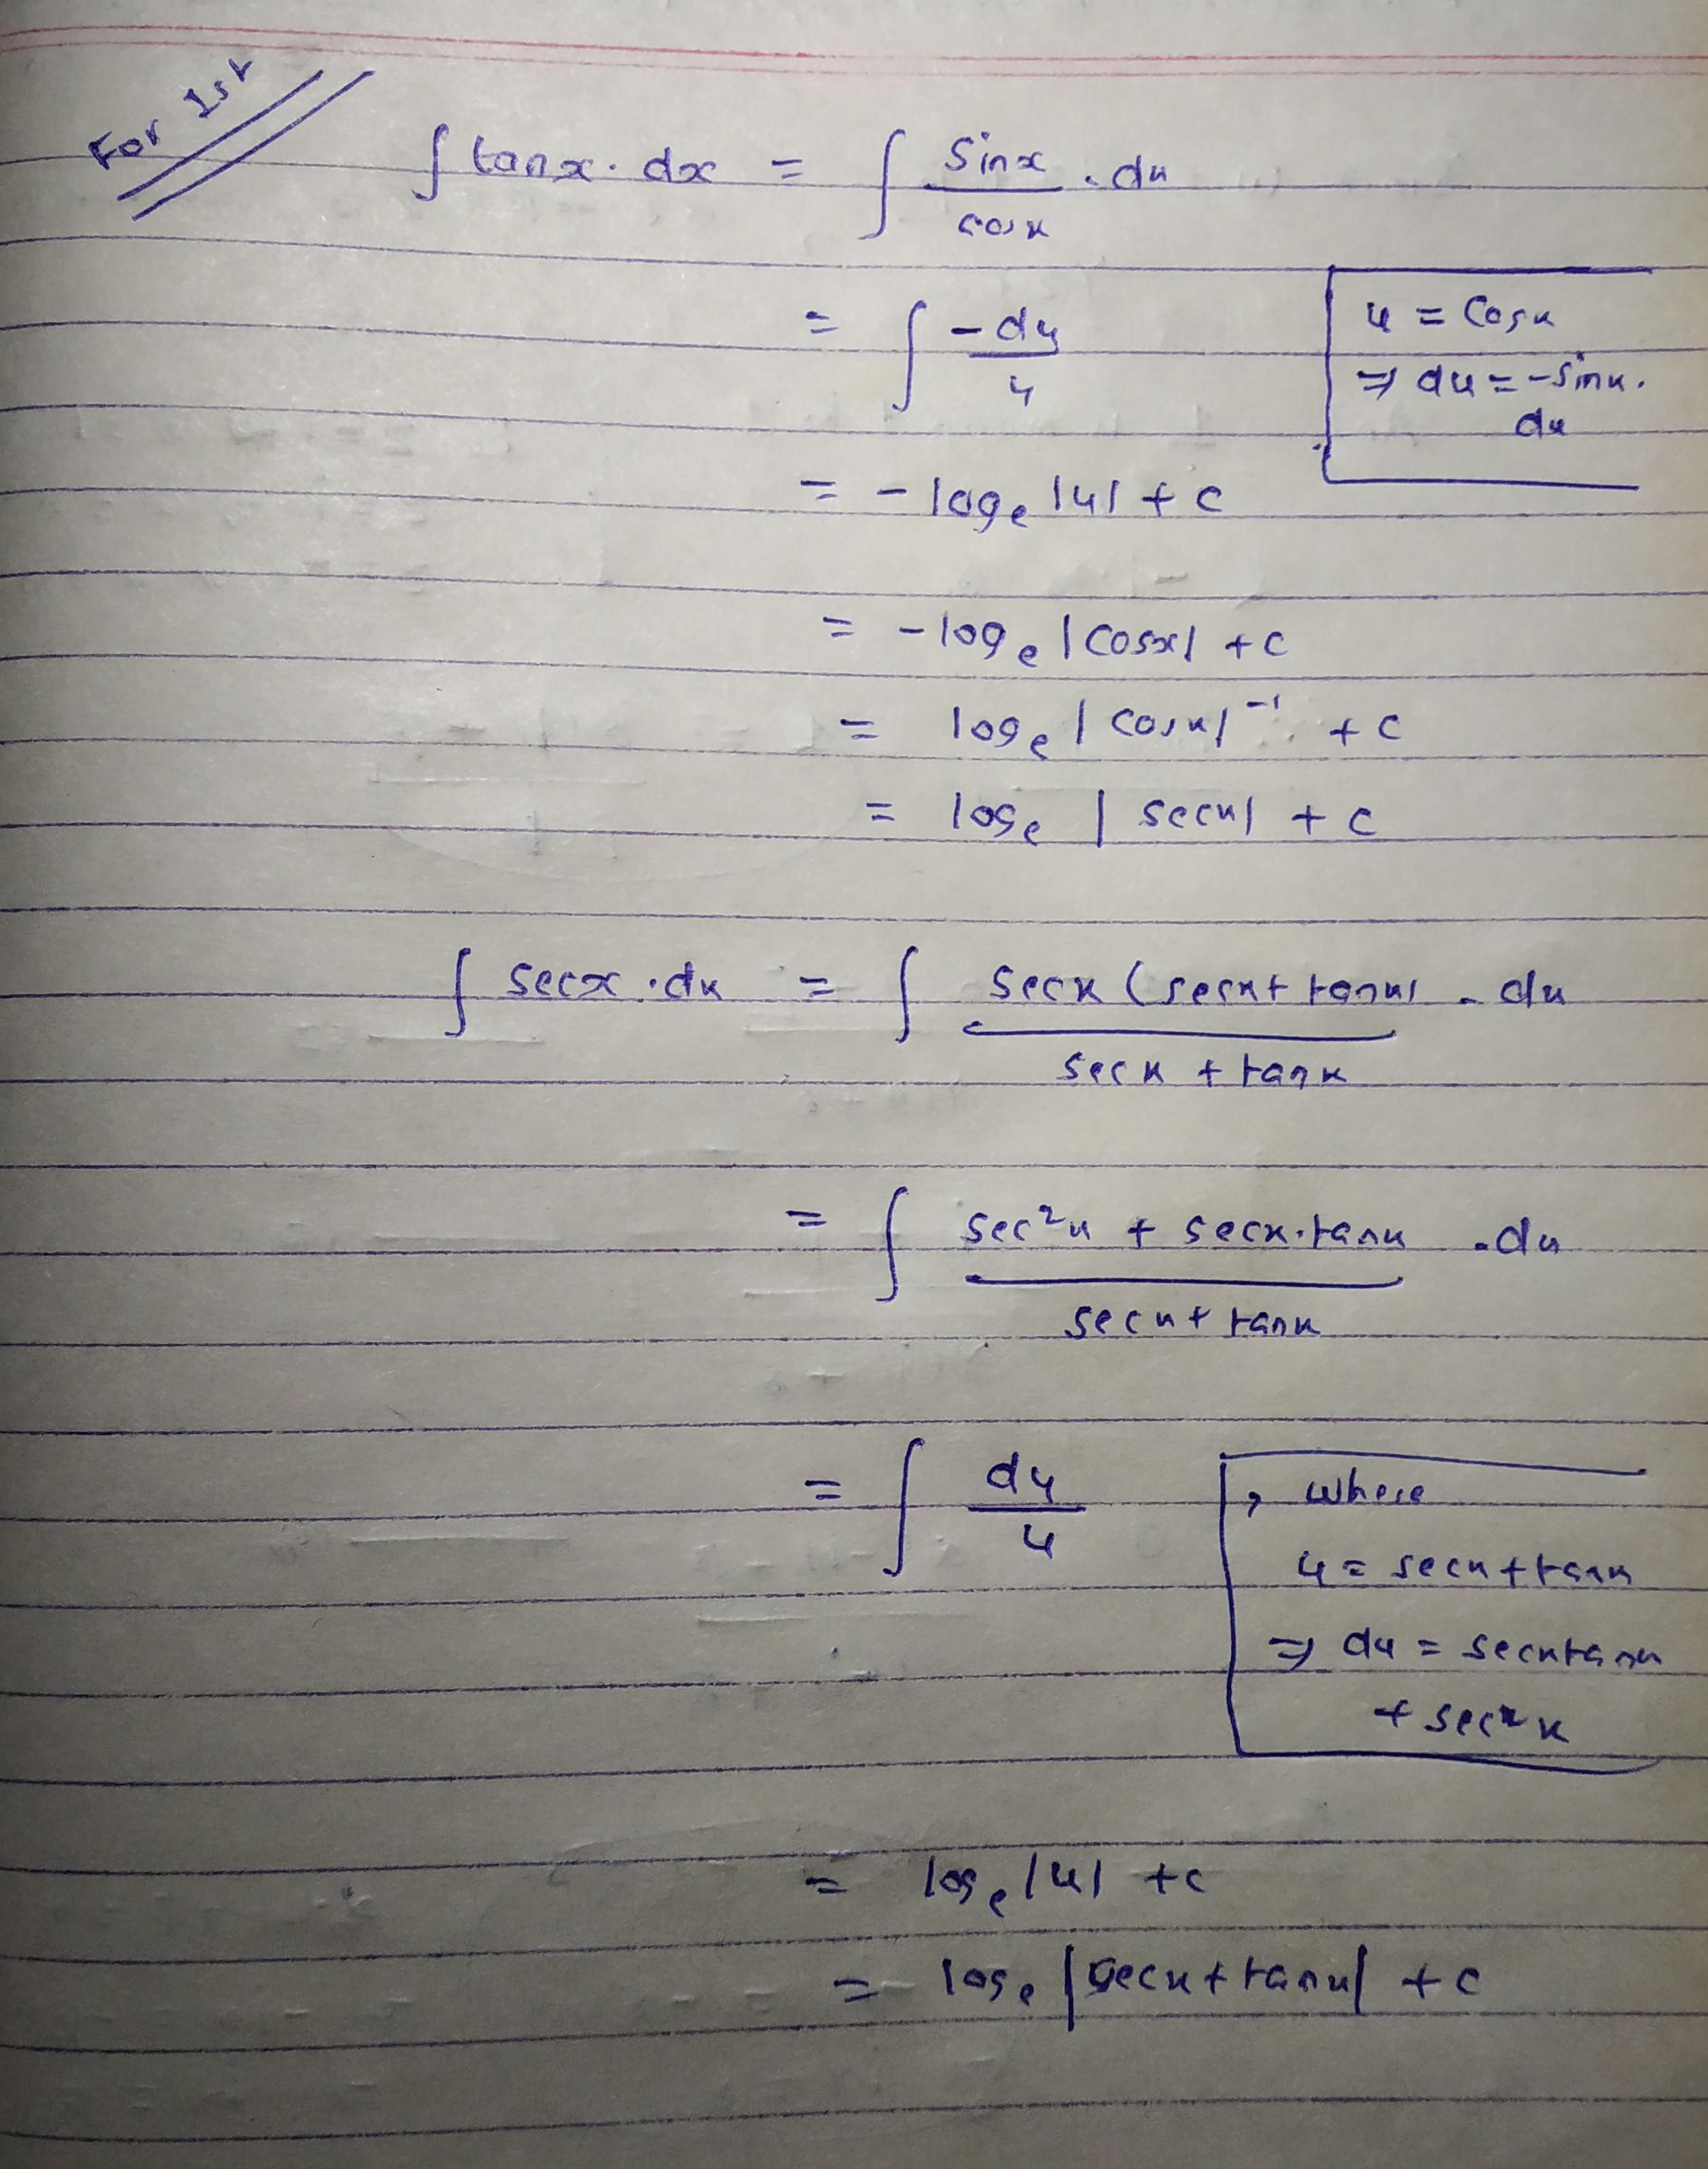 For 1st
∫ tanx · dx = ∫ sinx/cosx · dx
= ∫ -du/u
u = cosx
⇒ du = -sinx.
dx
= - logₑ |u| + c
= - logₑ |cosx| + c
= logₑ |cosx|⁻¹ + c
= logₑ |secx| + c
∫ secx · dx = ∫ secx (secx + tanx)/secx + tanx · dx
= ∫ sec²x + secx·tanx/secx + tanx · dx
= ∫ du/u
, where
u = secx + tanx
⇒ du = secxtanx
+ sec²x
= logₑ |u| + c
= logₑ |secx + tanx| + c